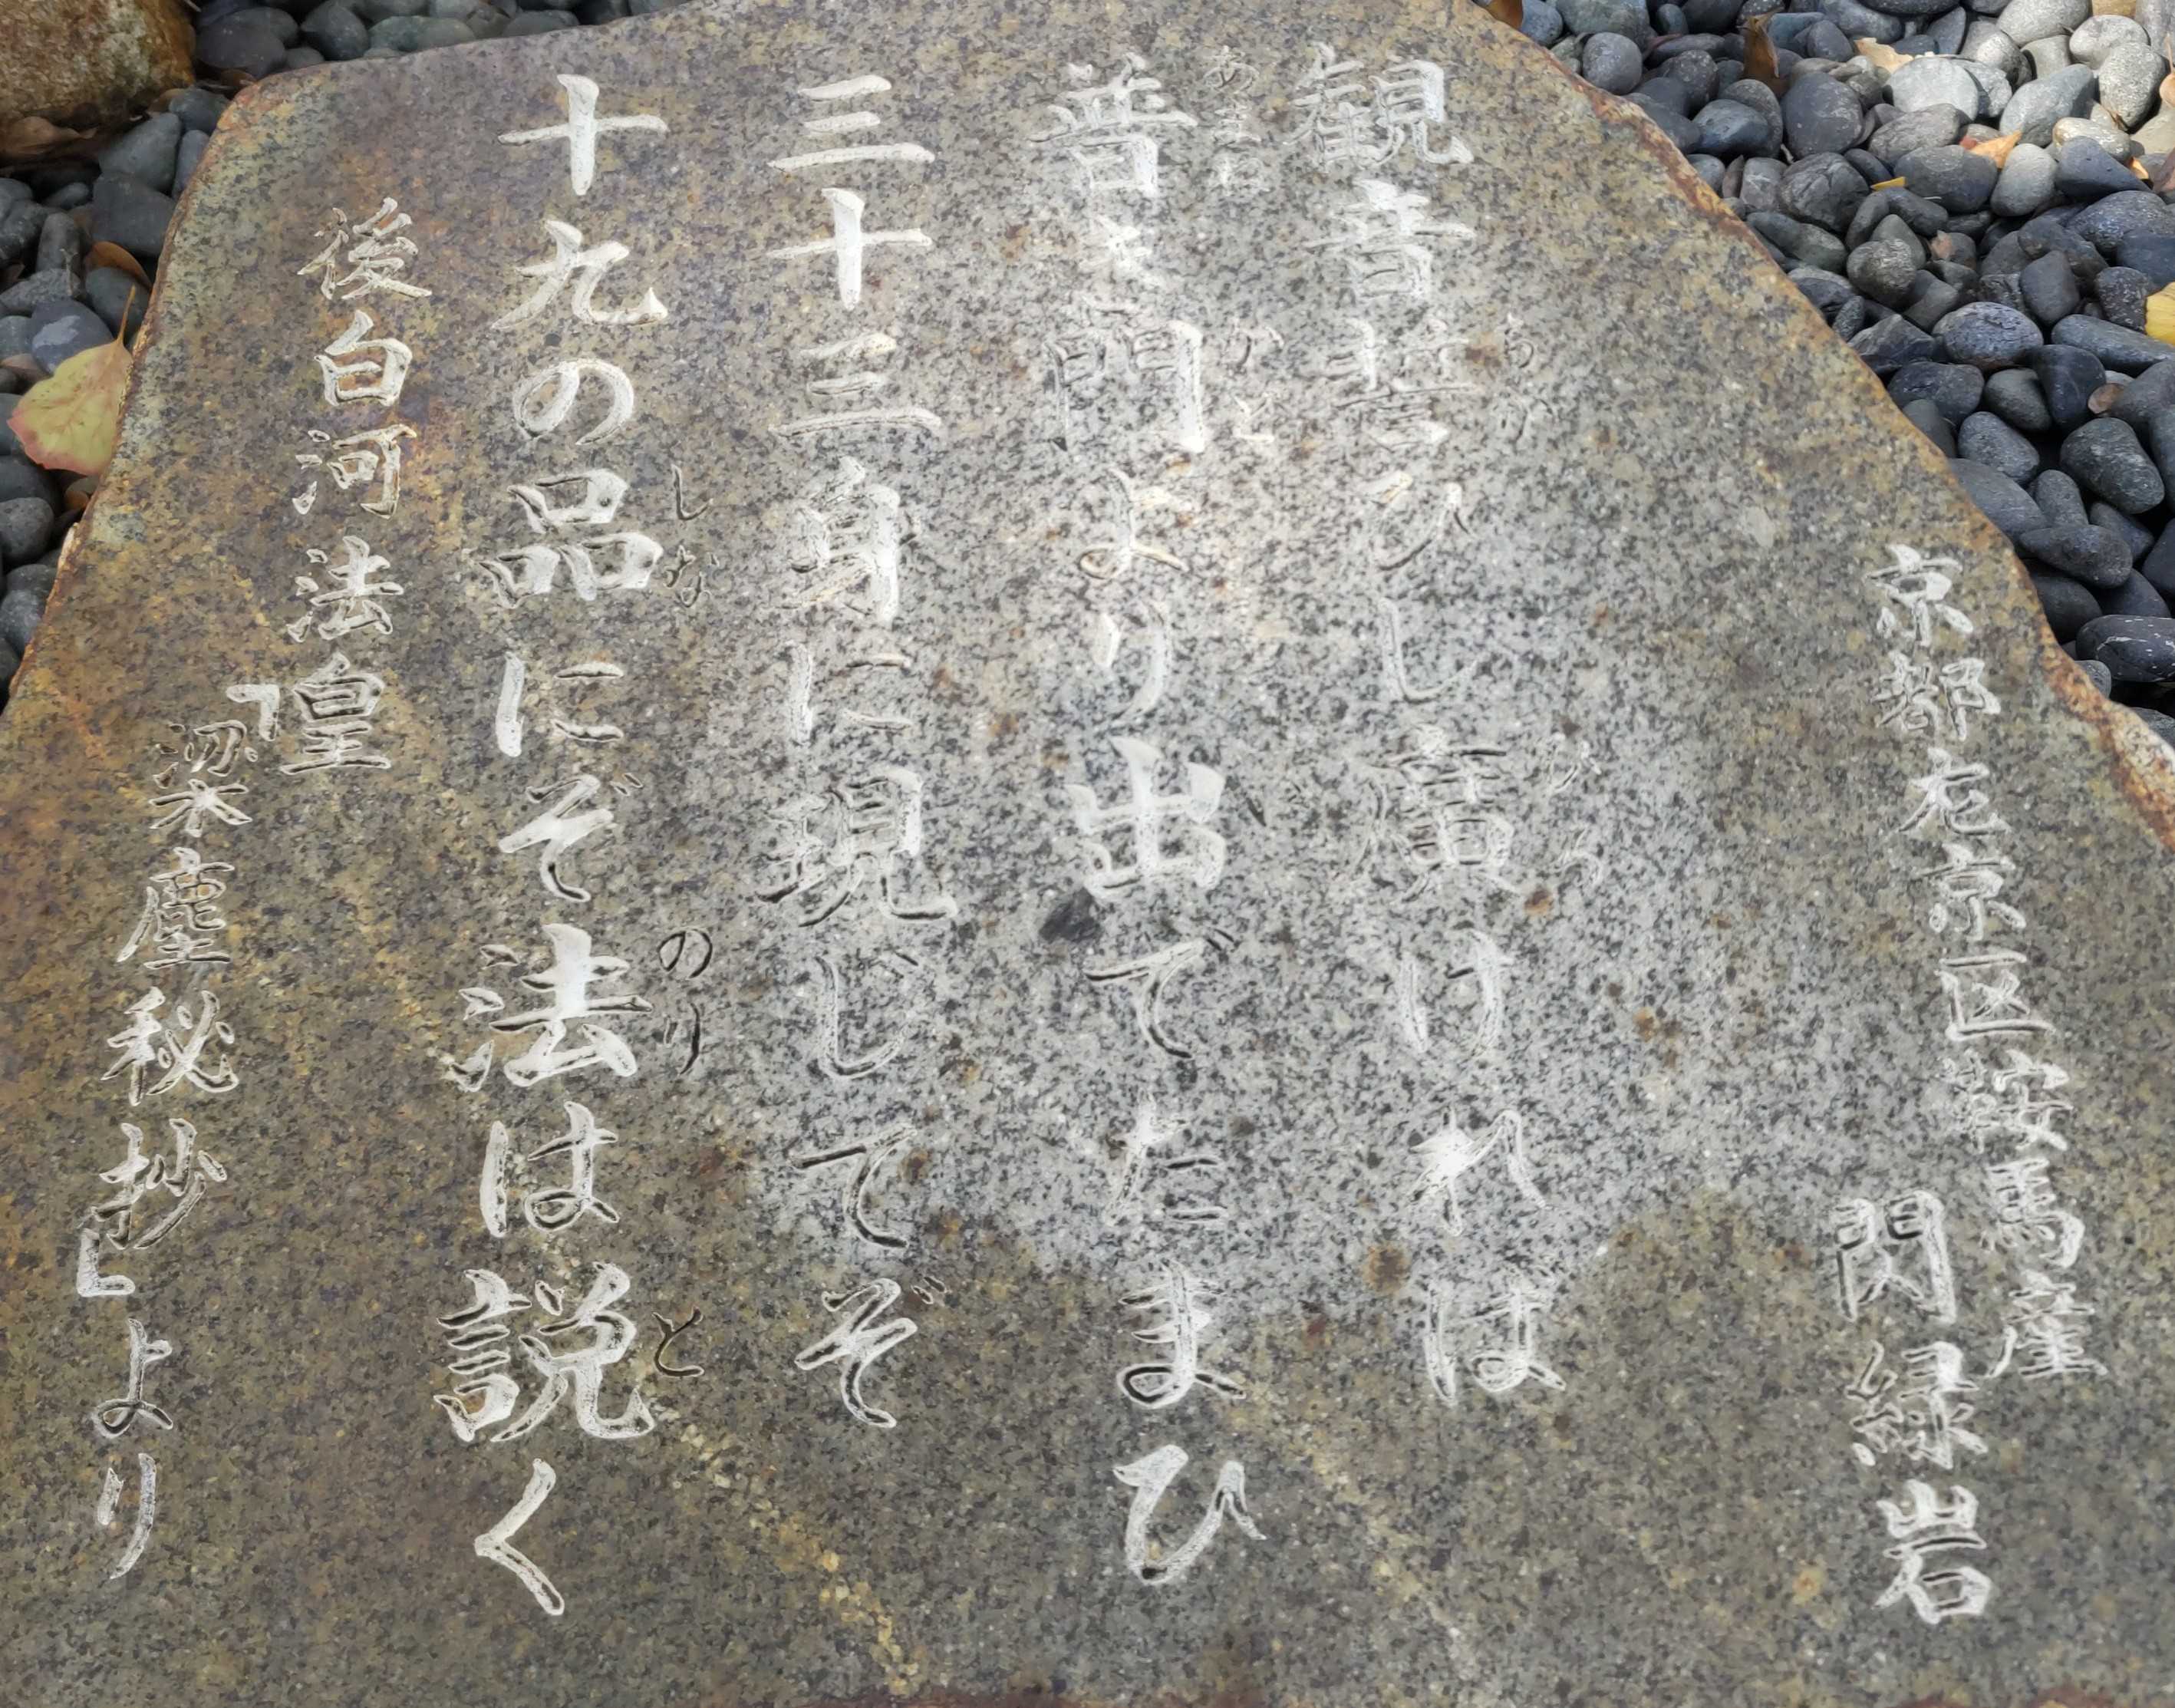 京都左京区鞍馬産
閃緑岩
観音誓ひし廣ければ
普き門より出でたまひ
三十三身に現じてぞ
十九の品にぞ法は説く
後白河法皇
「梁塵秘抄」より